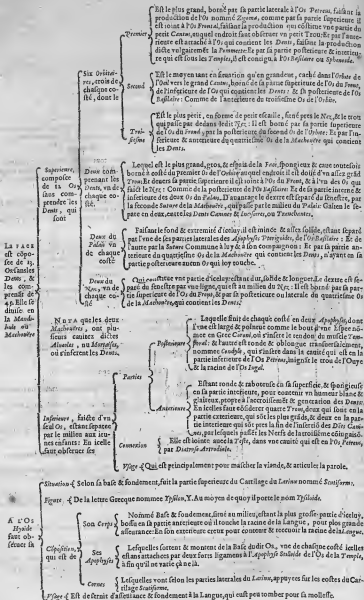 Est le plus grand, borné par sa partie laterale à l'Os Petreux, faisant la
production de l'Os nommé Zygoma, comme par sa partie superieure il
est joint à l'Os Frontal, faisant sa production qui côstitue vne partie du
petit Cantus, auquel endroit faut obseruer vn petit Trou: Et par l'ante-
rieure est attaché à l'Os qui contient les Dents, faisant la production
dicte vulgairemēt la Pommette: Et par sa partie posterieure & interieu-
re qui est sous les Temples, il est conioint à l'Os Basilaire ou Sphenoide.
Premier
Six Orbitai-
res, trois de
chasque co-
sté, dont le
Second
Est le moyen tant en
l'Oeil vers le grand Cantus, borné de sa partie superieure de l'Os du Front,
de l'inferieure de l'Os qui contient les Dents: & sa posterieure de l'Os
Basilaire: Comme de l'anterieure du troisiesme Os de l'Orbite.
Troi-
siesme
Est le plus petit, en forme de petit escaille, situé pres le Nez, & le trou
qui passe par dedans ledit Nez: il est borné par sa partie superieure
de l'Os du Front, par la posterieure du second Os de l'Orbite: Et par l'in-
ferieure & anterieure du quatriesme Os de la Machoire qui contient
les Dents.
Superieure,
composée
de 12 Os
sans com-
prendre les
Dents, qui
sont
Deux com-
prennant les
Dents, vn de
chaque co-
sté.
Lequel est le plus grand, gros, & espais de la Face, spongieux & caue toutesfois
borné à costé du premier Os de l'Orbite auquel endroit il est doüé d'vn assez grād
Trou. Et dessus sa partie superieure il est ioint à l'Os du Front, & à l'vn des Os qui
faict le Nez: Comme de la posterieure de l'Os Basilaire: Et de sa partie interne &
inferieure des deux Os du Palais. D'auantage le dextre est separé du senestre, par
la seconde Suture de la Machoire, qui passe par le milieu du Palais: Galien le se-
pare en deux, entre les Dents Canines & Incisoires, ou Tranchantes.
Deux du
Palais vn
de chaque
costé
Faisant le fond & extremité d'iceluy, il est mince & assez solide, estant separé
par l'vne de ses parties laterales des Apophyses Pterigoides, de l'Os Basilaire: Et de
l'autre par la Suture Commune à luy & à son compagnon: Et par sa partie an-
terieure du quatriesme Os de la Machoire qui contient les Dents, n'ayant en sa
partie posterieure aucun Os qui luy touche.
Deux du
Nez, vn de
chaque co-
sté.
Qui constitue vne partie d'iceluy, estant dur, solide & longuet. Le dextre est se-
paré du senestre par vne ligne, qui est au milieu du Nez: Il est borné par sa par-
tie superieure de l'Os du Front, & par sa posterieure ou laterale du quatriesme Os
de la Machoire, qui contient les Dents.
La Face
est côpo-
sée de 13.
Os sans les
Dents, &
les com-
prenant de
45. Elle se
diuise en
la Mandi-
bule ou
Machoire
Nota que les deux
Machoires, ont plu-
sieurs cauitez dictes
Alueoles, ou Mortaises,
où s'inserent les Dents.
Inferieure, faicte d'vn
seul Os, estant separée
par le milieu aux ieu-
nes enfants: En icelle
faut obseruer ses
Parties
Posterieure
Laquelle finit de chaque costé en deux Apophyses, dont
l'vne est large & pointue comme le bout d'vne Espee nom-
mee en Grec Coroni, où s'insere le tendon du muscle Tem-
poral: & l'autre est ronde & oblongue transuersalement,
nommee Condyle, qui s'insere dans la cauité qui est en la
partie inferieure de l'Os Petreux, ioignant le trou de l'Ouye
& la racine de l'Os Iugal.
Anterieure
Estant ronde & raboteuse en sa superficie, & spongieuse
en sa partie interieure, pour contenir vn humeur blanc &
glaireux, propre à l'accroissemēt & generation des Dents.
En icelles faut côsiderer quatre Trous, deux qui sont en la
partie exterieure, qui sôt les plus grāds, & deux en la par-
tie interieure
Nerfs de la troisiesme côiugaisô.
Connexion
Elle est iointe auec la Teste, dans vne cauité qui est en l'Os Petreux,
par Diartrose Artrodiale.
Vsage
Qui est principalement pour mascher la viande, & articuler la parole.
Situation
Selon sa base & fondement, suit la partie superieure du Cartilage du Larinx nommé Scutiforme.
Figure,
De la lettre Grecque nommee Ypsilon, Y. Au moyen de quoy il porte le nom Ypsiloide.
A l'Os
Hyoide
faut ob-
seruer sa
Côpositiô,
qui est de
Son Corps
Nommé Base & fondement, situé au milieu, estant la plus grosse partie d'iceluy,
bossu en sa partie anterieure où il touche la racine de la Langue, pour plus grande
asseurance: En son exterieure creux pour contenir & receuoir la racine de la Langue.
Ses
Apophyses
Lesquelles sortent & montent de la Base dudit Os, vne de chasque costé icelles
estans attachees par deux forts ligamens à l'Apophyse Styloide de l'Os de la Temple,
à fin qu'il ne varie çà ne là.
Cornes
Lesquelles vont selon les parties laterales du Larinx, appuyees sur les costes du Car-
tilage Scutiforme.
Vsage
Est de seruir d'asseurance & fondement à la Langue, qui eust peu tomber pour sa mollesse.